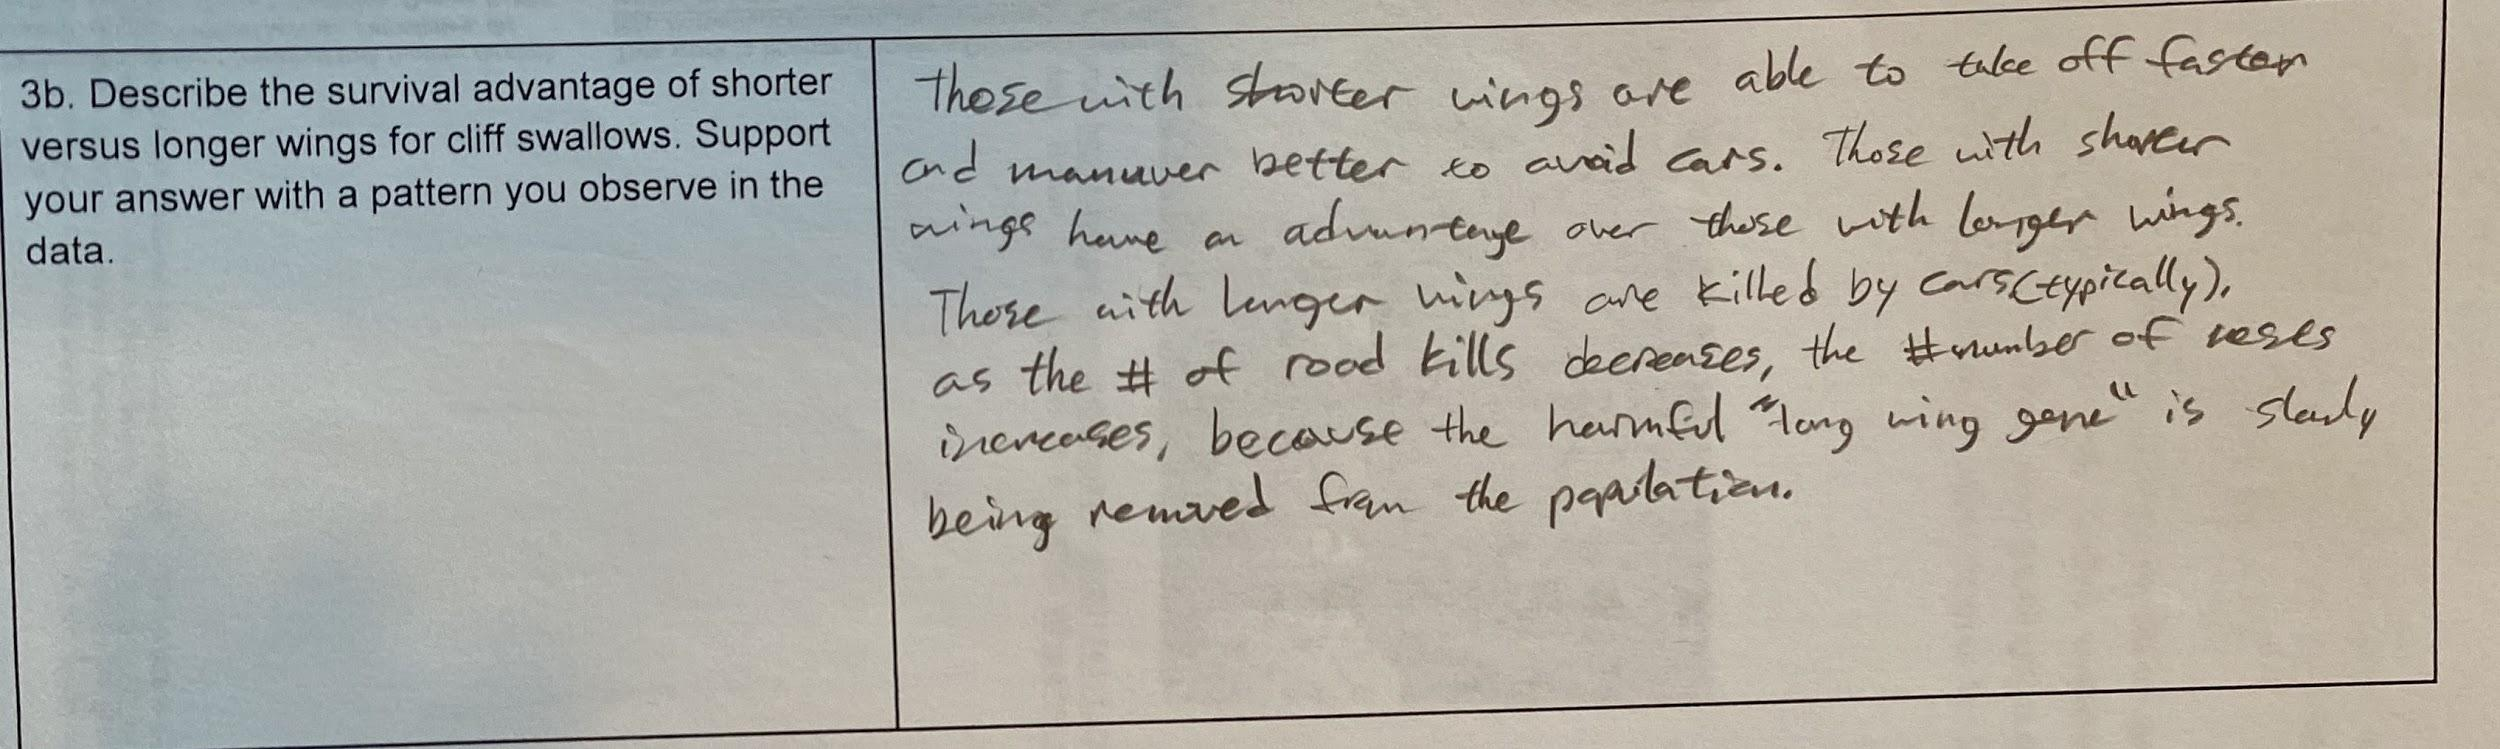 3b. Describe the survival advantage of shorter
versus longer wings for cliff swallows. Support
your answer with a pattern you observe in the
data.
Those with shorter wings are able to take off faster
and manuver better to avoid cars. Those with shorter
wings have an advantage over those with longer wings.
Those with longer wings are killed by cars (typically),
as the # of road kills decreases, the # number of nests
increases, because the harmful "long wing gene" is slowly
being removed from the population.